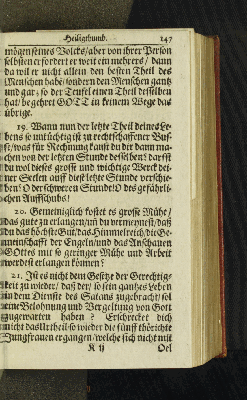 Heiligthumb. 147
mögen seines Volcks/ aber von ihrer Person
selbsten erfordert er weit ein mehrers/ dann
da wil er nicht allein den besten Theil des
Menschen habē/ sondern den Menschen gantz
und gar; so der Teufel einen Theil desselben
hat/ begehret GOTT in keinem Wege das
übrige.
19. Wann nun der letzte Theil deines Le-
bens so untüchtig ist zu rechtschaffener Bus-
se/ was für Rechnung kanst du dir dann ma-
chen von der letzten Stunde desselben? darfst
du wol dieses grosse und wichtige Werck dei-
ner Seelen auff diese letzte Stunde verschie-
ben? O der schweren Stunde! O des gefährli-
chen Auffschubs!
20. Gemeiniglich kostet es grosse Mühe/
das gute zu erlangen/ un du vermeynest/ daß
du das höchste Gut/ das Himmelreich/ die Ge-
meinschafft der Engeln/ und das Anschauen
Gottes mit so geringer Mühe und Arbeit
werdest erlangen können?
21. Ist es nicht dem Gesetze der Gerechtig-
keit zu wieder/ daß der/ so sein gantzes Leben
in dem Dienste des Satans zugebracht/ sol
eine Belohnung und Vergeltung von Gott
zugewarten haben? Erschrecket dich
nicht das Urtheil/ so wieder die fünff thörichte
Jungfrauen ergangen/ welche sich nicht mit
K ij Oel